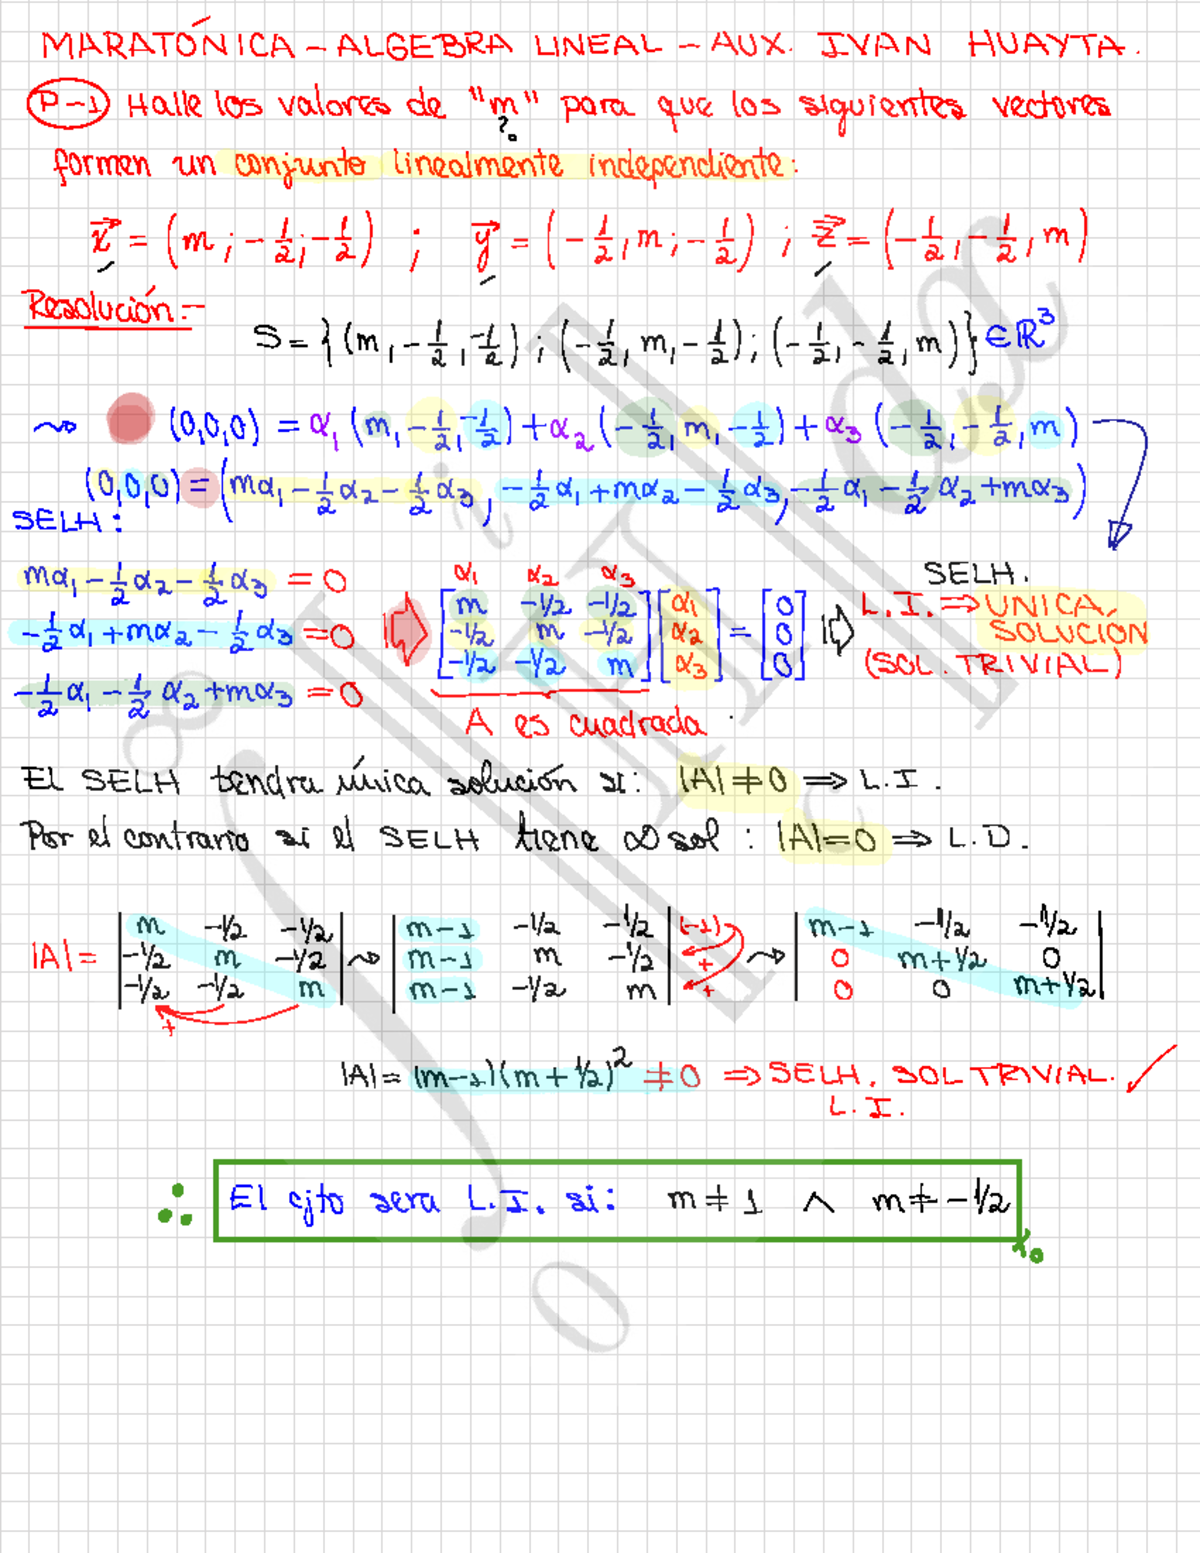 MARATÓNICA - ALGEBRA LINEAL - AUX. IVAN HUAYTA.
P-1 Halle los valores de "m" para que los siguientes vectores
?
formen un conjunto linealmente independiente:
x⃗ = (m ; -1/2 ; -1/2) ; y⃗ = (-1/2 , m ; -1/2) ; z⃗ = (-1/2 , -1/2 , m)
Resolución:-
S = {(m , -1/2 , -1/2) ; (-1/2 , m , -1/2) ; (-1/2 , -1/2 , m)} ∈ ℝ³
⇝ (0,0,0) = α₁ (m , -1/2 , -1/2) + α₂ (-1/2 , m , -1/2) + α₃ (-1/2 , -1/2 , m)
(0,0,0) = (mα₁ - 1/2 α₂ - 1/2 α₃ , -1/2 α₁ + mα₂ - 1/2 α₃ , -1/2 α₁ - 1/2 α₂ + mα₃)
SELH:
mα₁ - 1/2 α₂ - 1/2 α₃ = 0
-1/2 α₁ + mα₂ - 1/2 α₃ = 0
-1/2 α₁ - 1/2 α₂ + mα₃ = 0
α₁ α₂ α₃
m -1/2 -1/2 α₁ 0
-1/2 m -1/2 α₂ = 0
-1/2 -1/2 m α₃ 0
A es cuadrada
SELH.
L.I. ⇒ UNICA
SOLUCION
(SOL. TRIVIAL)
El SELH tendra única solución si: |A| ≠ 0 ⇒ L.I.
Por el contrario si el SELH tiene ∞ sol : |A| = 0 ⇒ L.D.
|A| = | m -1/2 -1/2 | ⇝ | m-1 -1/2 -1/2 | (-1) ⇝ | m-1 -1/2 -1/2 |
| -1/2 m -1/2 | | m-1 m -1/2 | + | 0 m+1/2 0 |
| -1/2 -1/2 m | | m-1 -1/2 m | + | 0 0 m+1/2 |
+
|A| = (m-1)(m+1/2)² ≠ 0 ⇒ SELH. SOL TRIVIAL. ✓
L.I.
∴ El cjto sera L.I. si: m ≠ 1 ∧ m ≠ -1/2